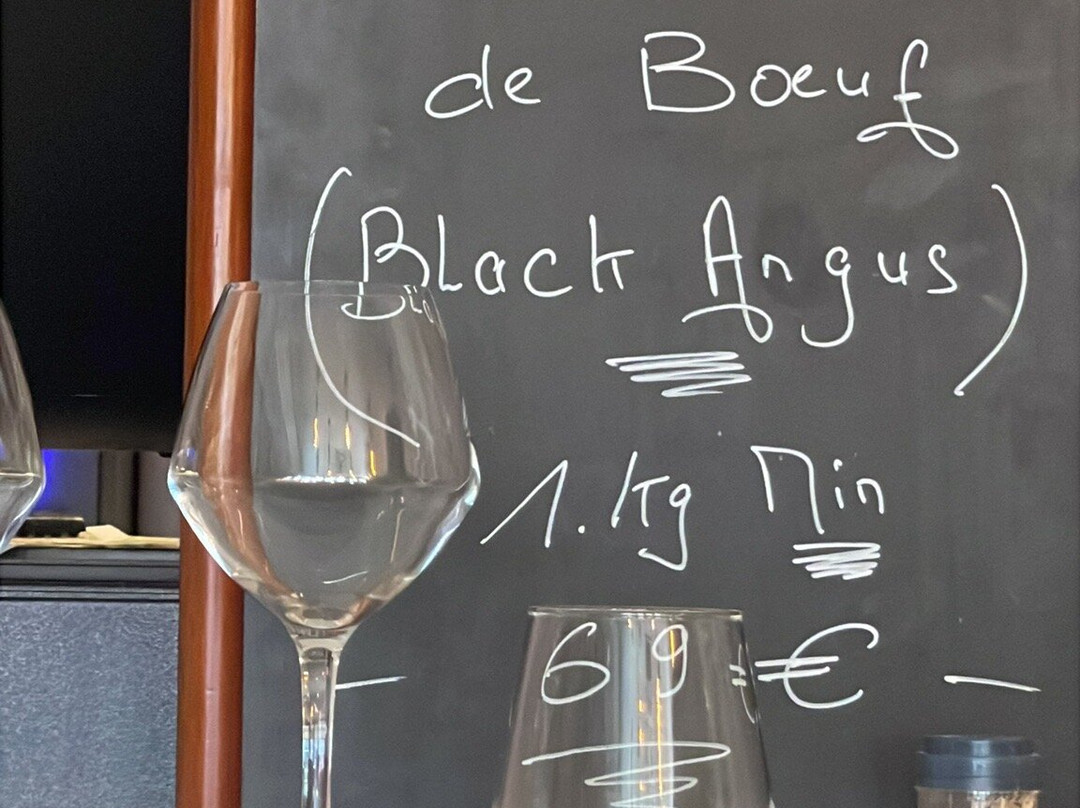 de Boeuf
(Black Angus)
1.kg Min
- 69 € -